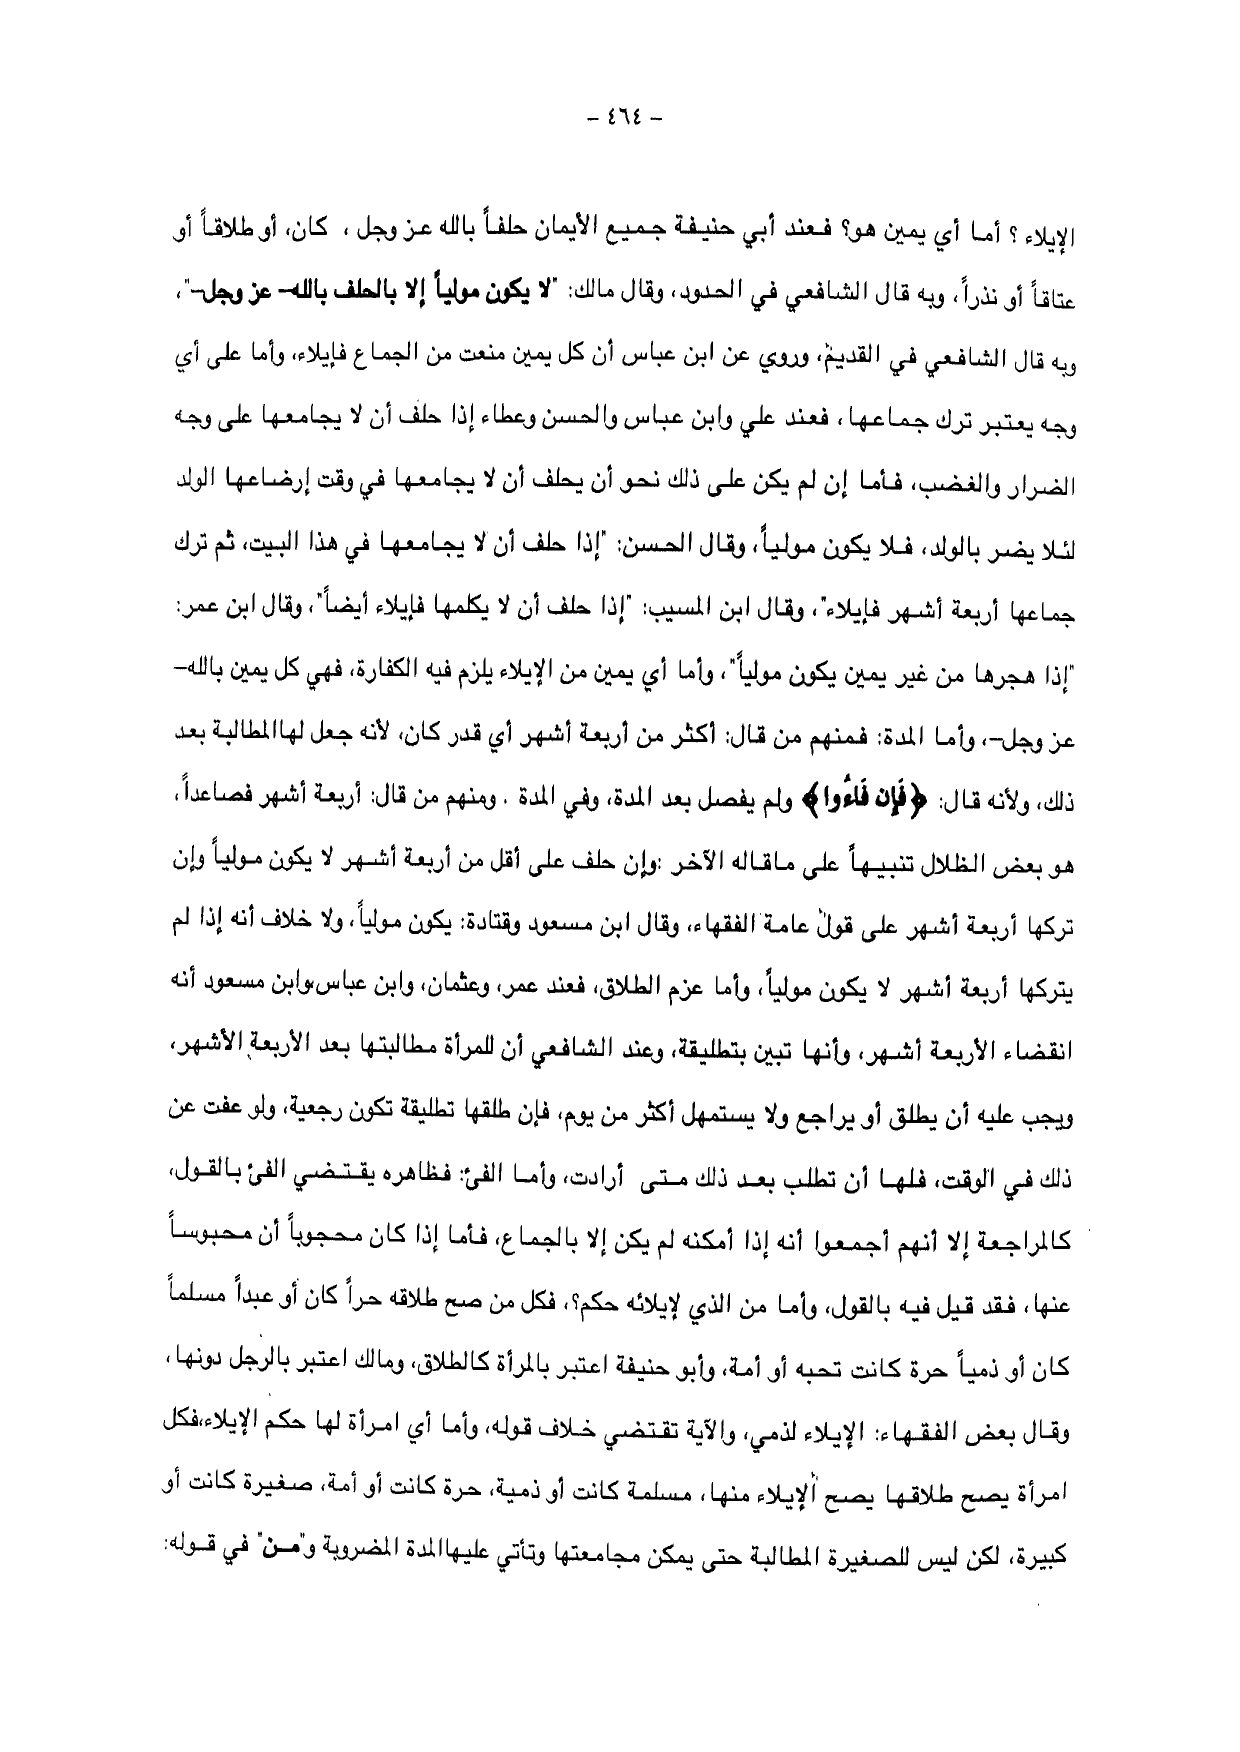 - ٤٦٤ -
الإيلاء ؟ أما أي يمين هو؟ فعند أبي حنيفة جميع الأيمان حلفاً بالله عز وجل ، كان، أو طلاقاً أو
عتاقاً أو نذراً، وبه قال الشافعي في الحدود، وقال مالك: "لا يكون مولياً إلا بالحلف بالله- عز وجل-"،
وبه قال الشافعي في القديم، وروي عن ابن عباس أن كل يمين منعت من الجماع فإيلاء، وأما على أي
وجه يعتبر ترك جماعها، فعند علي وابن عباس والحسن وعطاء إذا حلف أن لا يجامعها على وجه
الضرار والغضب، فأما إن لم يكن على ذلك نحو أن يحلف أن لا يجامعها في وقت إرضاعها الولد
لئلا يضر بالولد، فلا يكون مولياً، وقال الحسن: "إذا حلف أن لا يجامعها في هذا البيت، ثم ترك
جماعها أربعة أشهر فإيلاء"، وقال ابن المسيب: "إذا حلف أن لا يكلمها فإيلاء أيضاً"، وقال ابن عمر:
"إذا هجرها من غير يمين يكون مولياً"، وأما أي يمين من الإيلاء يلزم فيه الكفارة، فهي كل يمين بالله-
عز وجل-، وأما المدة: فمنهم من قال: أكثر من أربعة أشهر أي قدر كان، لأنه جعل لها المطالبة بعد
ذلك، ولأنه قال: ﴿فَإِن فَاءُوا﴾ ولم يفصل بعد المدة، وفي المدة . ومنهم من قال: أربعة أشهر فصاعداً،
هو بعض الظلال تنبيهاً على ماقاله الآخر :وإن حلف على أقل من أربعة أشهر لا يكون مولياً وإن
تركها أربعة أشهر على قول عامة الفقهاء، وقال ابن مسعود وقتادة: يكون مولياً، ولا خلاف أنه إذا لم
يتركها أربعة أشهر لا يكون مولياً، وأما عزم الطلاق، فعند عمر، وعثمان، وابن عباس،وابن مسعود أنه
انقضاء الأربعة أشهر، وأنها تبين بتطليقة، وعند الشافعي أن للمرأة مطالبتها بعد الأربعة الأشهر،
ويجب عليه أن يطلق أو يراجع ولا يستمهل أكثر من يوم، فإن طلقها تطليقة تكون رجعية، ولو عفت عن
ذلك في الوقت، فلها أن تطلب بعد ذلك متى أرادت، وأما الفئ: فظاهره يقتضي الفئ بالقول،
كالمراجعة إلا أنهم أجمعوا أنه إذا أمكنه لم يكن إلا بالجماع، فأما إذا كان محجوباً أن محبوساً
عنها، فقد قيل فيه بالقول، وأما من الذي لإيلائه حكم؟، فكل من صح طلاقه حراً كان أو عبداً مسلماً
كان أو ذمياً حرة كانت تحبه أو أمة، وأبو حنيفة اعتبر بالمرأة كالطلاق، ومالك اعتبر بالرجل دونها،
وقال بعض الفقهاء: الإيلاء لذمي، والآية تقتضي خلاف قوله، وأما أي امرأة لها حكم الإيلاء،فكل
امرأة يصح طلاقها يصح الإيلاء منها، مسلمة كانت أو ذمية، حرة كانت أو أمة، صغيرة كانت أو
كبيرة، لكن ليس للصغيرة المطالبة حتى يمكن مجامعتها وتأتي عليها المدة المضروبة و"من" في قوله: